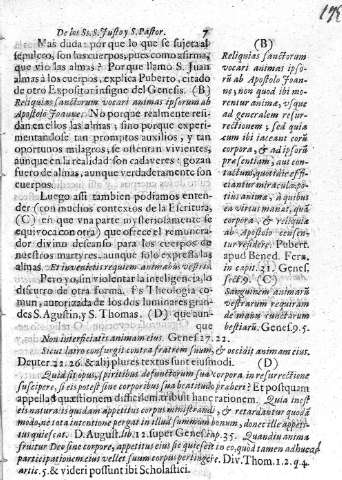 De los SS. S. Justo y S. Pastor.
7
198
Mas duda: por que lo que se sujeta al
sepulcro, son los cuerpos, pues como afirma,
que viò las almas? Por que llamò S. Juan
almas à los cuerpos, explica Puberto, citado
de otro Expositor insigne del Genesis. (B)
Reliquias sanctorum vocari animas ipsorum ab
Apostolo Joanne. No porque realmente resi-
dan en ellos las almas; sino porque experi-
mentandose tan promptos auxilios, y tan
oportunos milagros, se ostentan vivientes,
aunque en la realidad son cadaveres: gozan
fuero de almas, aunque verdaderamente son
cuerpos.
Luego assi tambien podramos enten-
der (con muchos contextos de la Escritura,
(C) en que vna parte mysteriosamente se
equivoca con otra) que ofrece el remunera-
dor divino descanso para los cuerpos de
nuestros martyres, aunque solo expressa las
almas. Et invenietis requiem animabus vestris.
Pero yo, sin violentar la inteligencia,
discurro de otra forma. Es Theologia co-
mun, autorizada de los dos luminares gran-
des S. Agustin, y S. Thomas. (D) que aun-
que
(B)
Reliquias sanctorum
vocari animas ipso-
rum ab Apostolo Joan-
ne, non quod ibi mo-
rentur animæ, vsque
ad generalem resur-
rectionem, sed quia
cum ibi iaceant eorum
corpora, & ad ipsorum
præsentiam, aut con-
tactum, quotidie effi-
ciantur miracula, po-
tius animæ, à quibus
ea virtus manat, quàm
corpora, & reliquiæ
ab Apostolo censen-
tur residere. Pubert.
apud Bened. Fera,
in capit. 21. Genes.
sect. 9. (C)
Sanguinem animarum
vestrarum requiram
de manu cunctarum
bestiarum. Genes. 9. 5.
Non interficiatis animam eius. Genes. 37. 22.
Sicut latro consurgit contra fratrem suum, & occidit animam eius.
Deuter. 22. 26. & alij plures textus sunt eiusmodi. (D)
Quid sit opus, spiritibus defunctorum sua corpora in resurrectione
suscipere, si eis potest sine corporibus sua beatitudo præberi? Et postquam
appellat quæstionem difficilem tribuit rationem. Quia inest
eis naturalis quidam appetitus corpus ministrandi, & retardantur quodam
modo, ne tota intentione pergat in illud summum bonum, donec ille appeti-
tus quiescat. D. August. lib. 12. super Genes. cap. 35. Quandiu anima
fruitur Deo sine corpore, appetitus eius ita quiescit in eo, quod tamen adhuc ad
participationem eius vellet suum corpus pertingere. Div. Thom. 1. 2. q. 4.
artic. 5. & videri possunt ibi Scholastici.